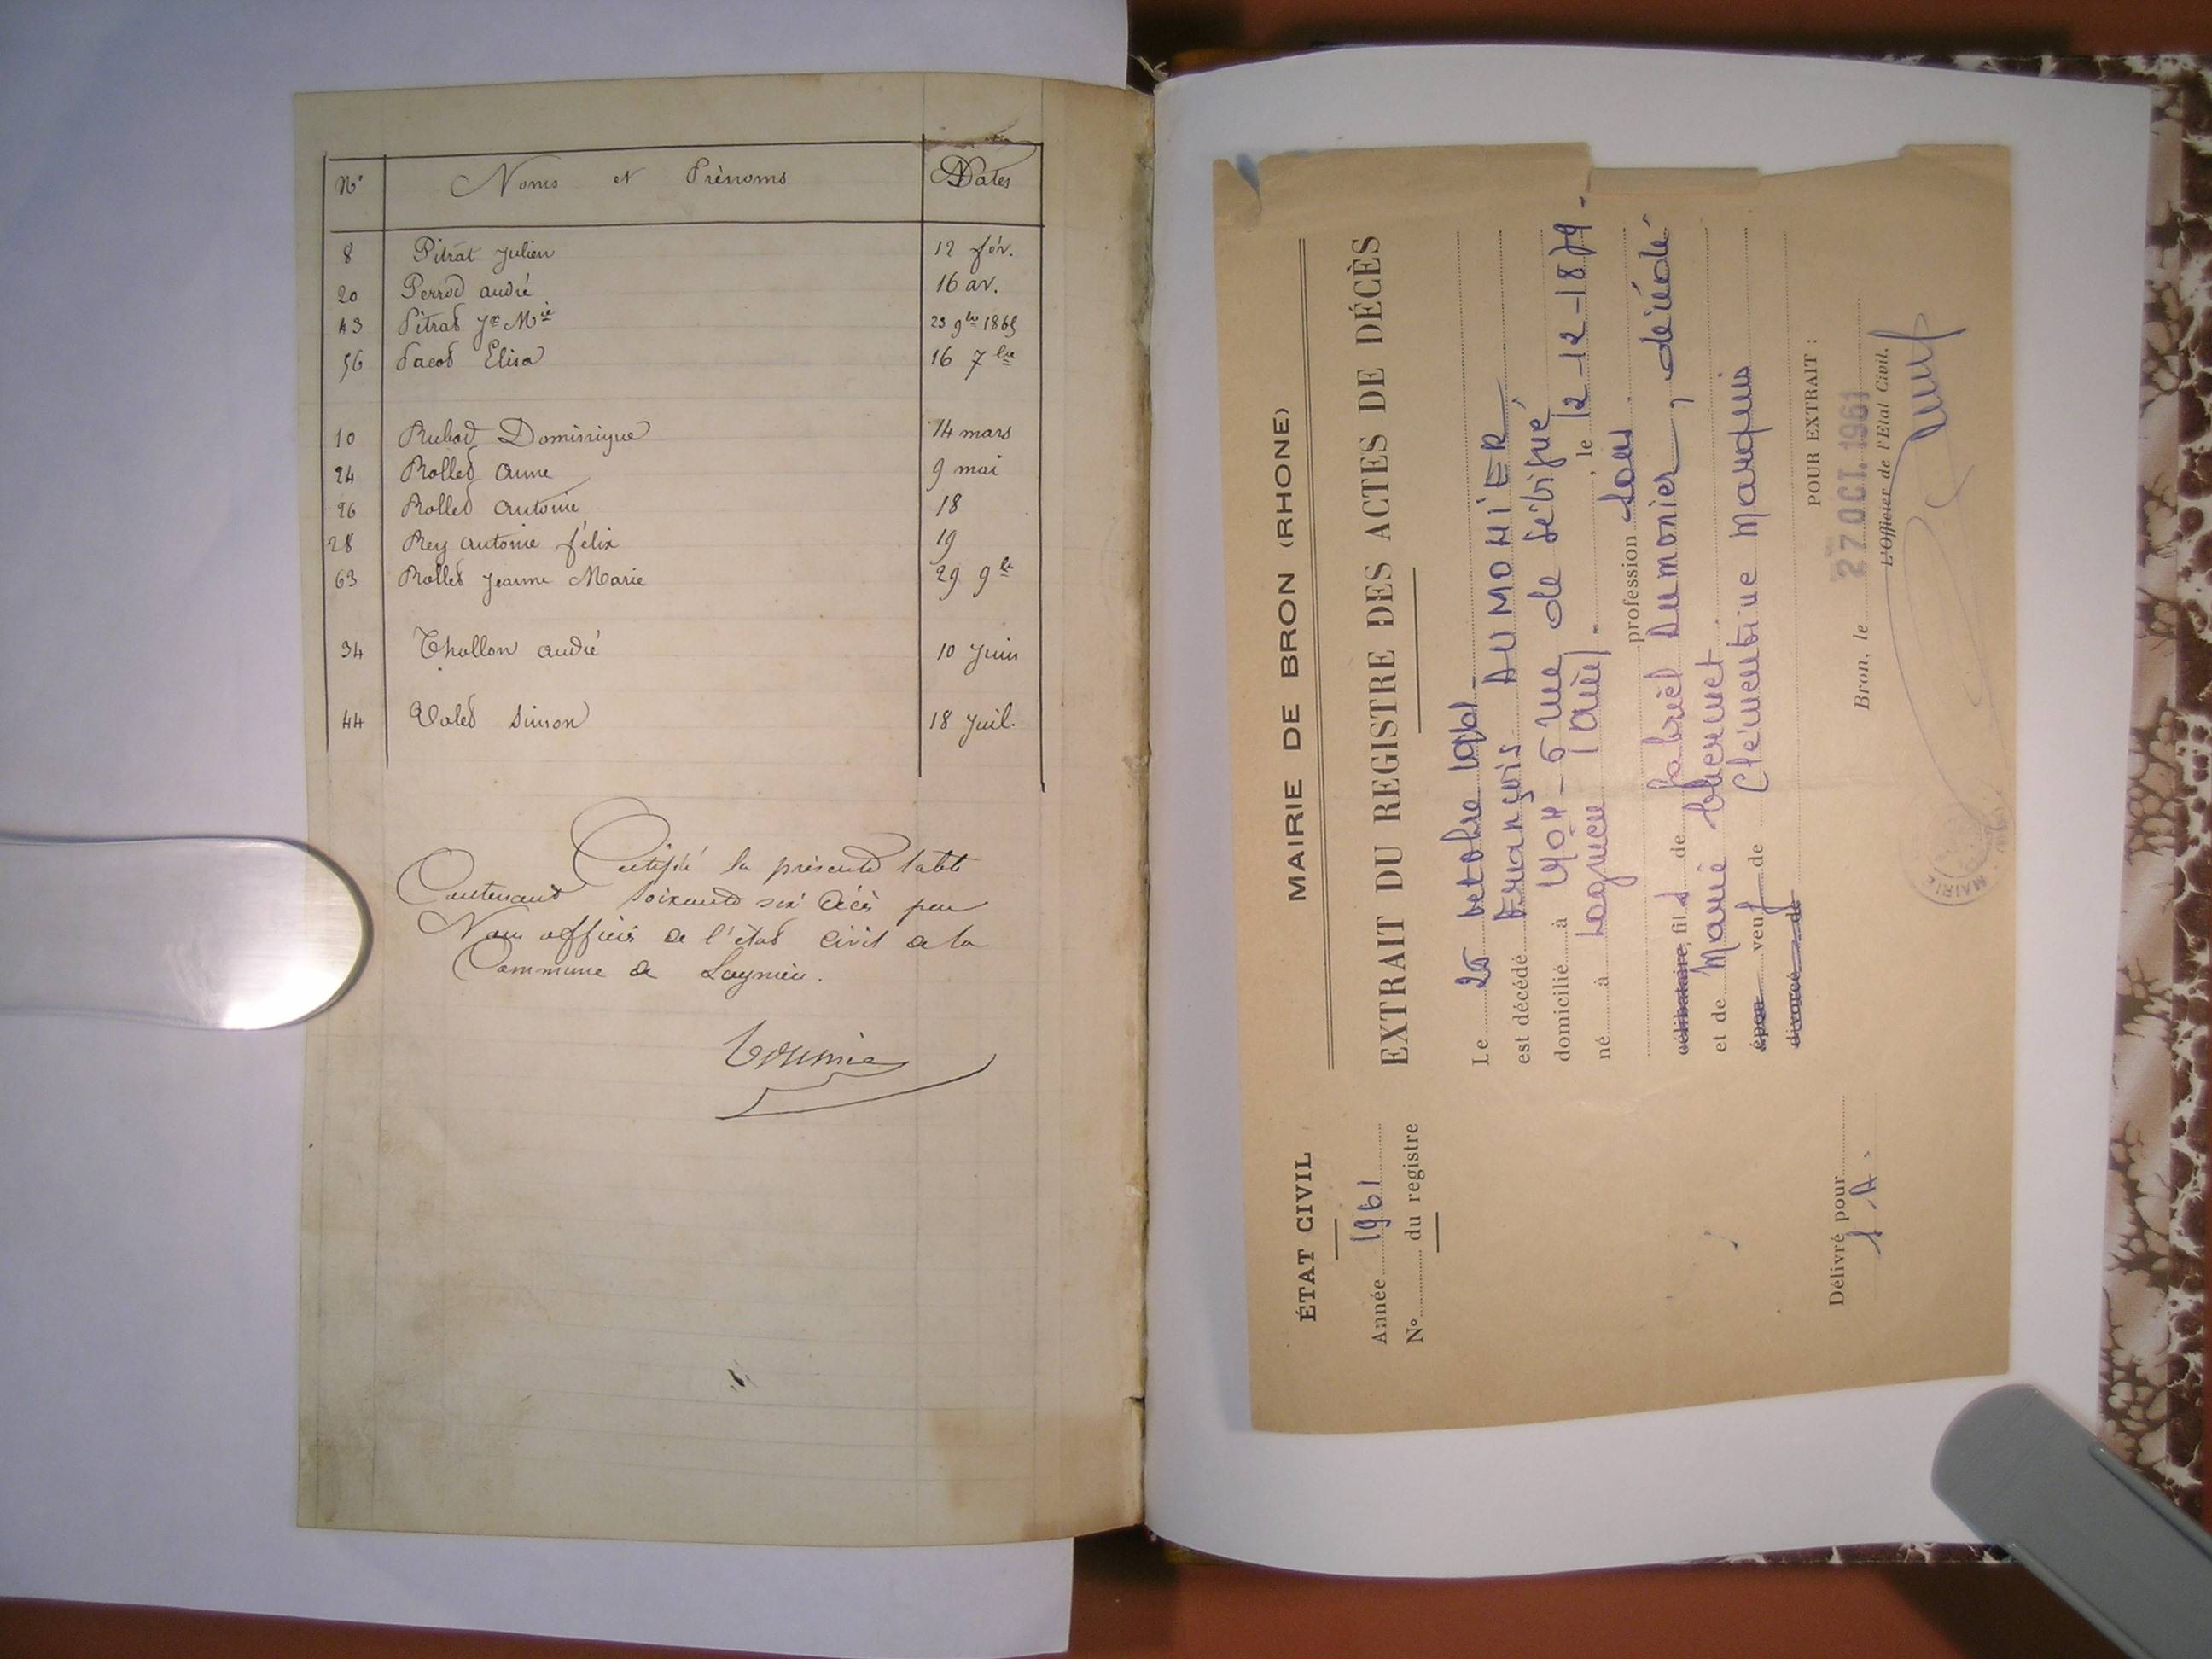 N° Noms et Prénoms Dates
8 Pitrat Julien 12 fév.
20 Perrod andré 16 av.
43 Pitrat Jne Mie 23 9bre 1865
56 Pacod Elisa 16 7bre
10 Rubod Dominique 14 mars
24 Rolled anne 9 mai
26 Rolled antoine 18
28 Rey antonie félix 19
63 Rolled Jeanne Marie 29 9bre
34 Thollon andré 10 Juin
44 Voled Simon 18 Juil.
Certifié la présente table
Contenant soixante six décès par
Nous officier de l'état civil de la
Commune de Lagnieu.
ÉTAT CIVIL
Année 1961
N° du registre
MAIRIE DE BRON (RHONE)
EXTRAIT DU REGISTRE DES ACTES DE DÉCÈS
Le 20 octobre 1961
est décédé François AUMONIER
domicilié à rue de Sébigué,
né à Lagnieu (Ain). , le 12-12-1879.
profession sans
célibataire, fils de Gabriel Aumonier, décédé
et de Marie
époux veuf de Clémentine Marquis
divorcé de
POUR EXTRAIT :
Bron, le 27 OCT. 1961
L'Officier de l'Etat Civil,
MAIRIE
Délivré pour